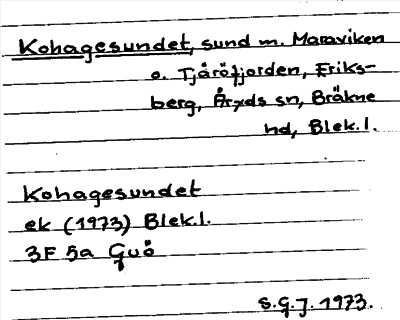 Kohagesundet, sund m. Maraviken
o. Tjäröfjorden, Eriks-
berg, Åryds sn, Bräkne
hd, Blek.l.
Kohagesundet
ek (1973) Blek.l.
3F 5a Guö
S.G.J. 1973.